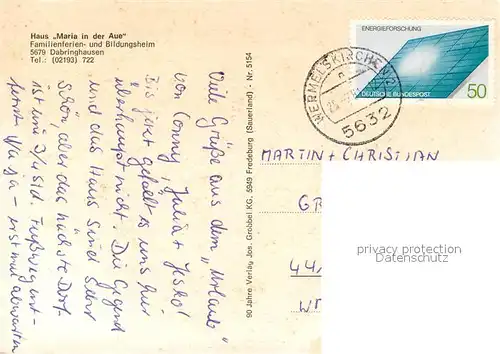 Haus „Maria in der Aue"
Familienferien- und Bildungsheim
5679 Dabringhausen
Tel.: (02193) 722
Viele Grüße aus dem „Urlaub"
von Conny, Julia + Heiko!
Bis jetzt gefällt es uns hier
überhaupt nicht. Die Gegend
und das Haus sind sehr
schön, aber das nächste Dorf
ist eine 3/4 Std. Fußweg ent-
fernt. Na ja – erst mal abwarten
90 Jahre Verlag Jos. Grobbel KG, 5949 Fredeburg (Sauerland) - Nr. 5154
ENERGIEFORSCHUNG
DEUTSCHE BUNDESPOST
50
WERMELSKIRCHEN
5632
MARTIN + CHRISTIAN
GR
44
privacy protection
Datenschutz